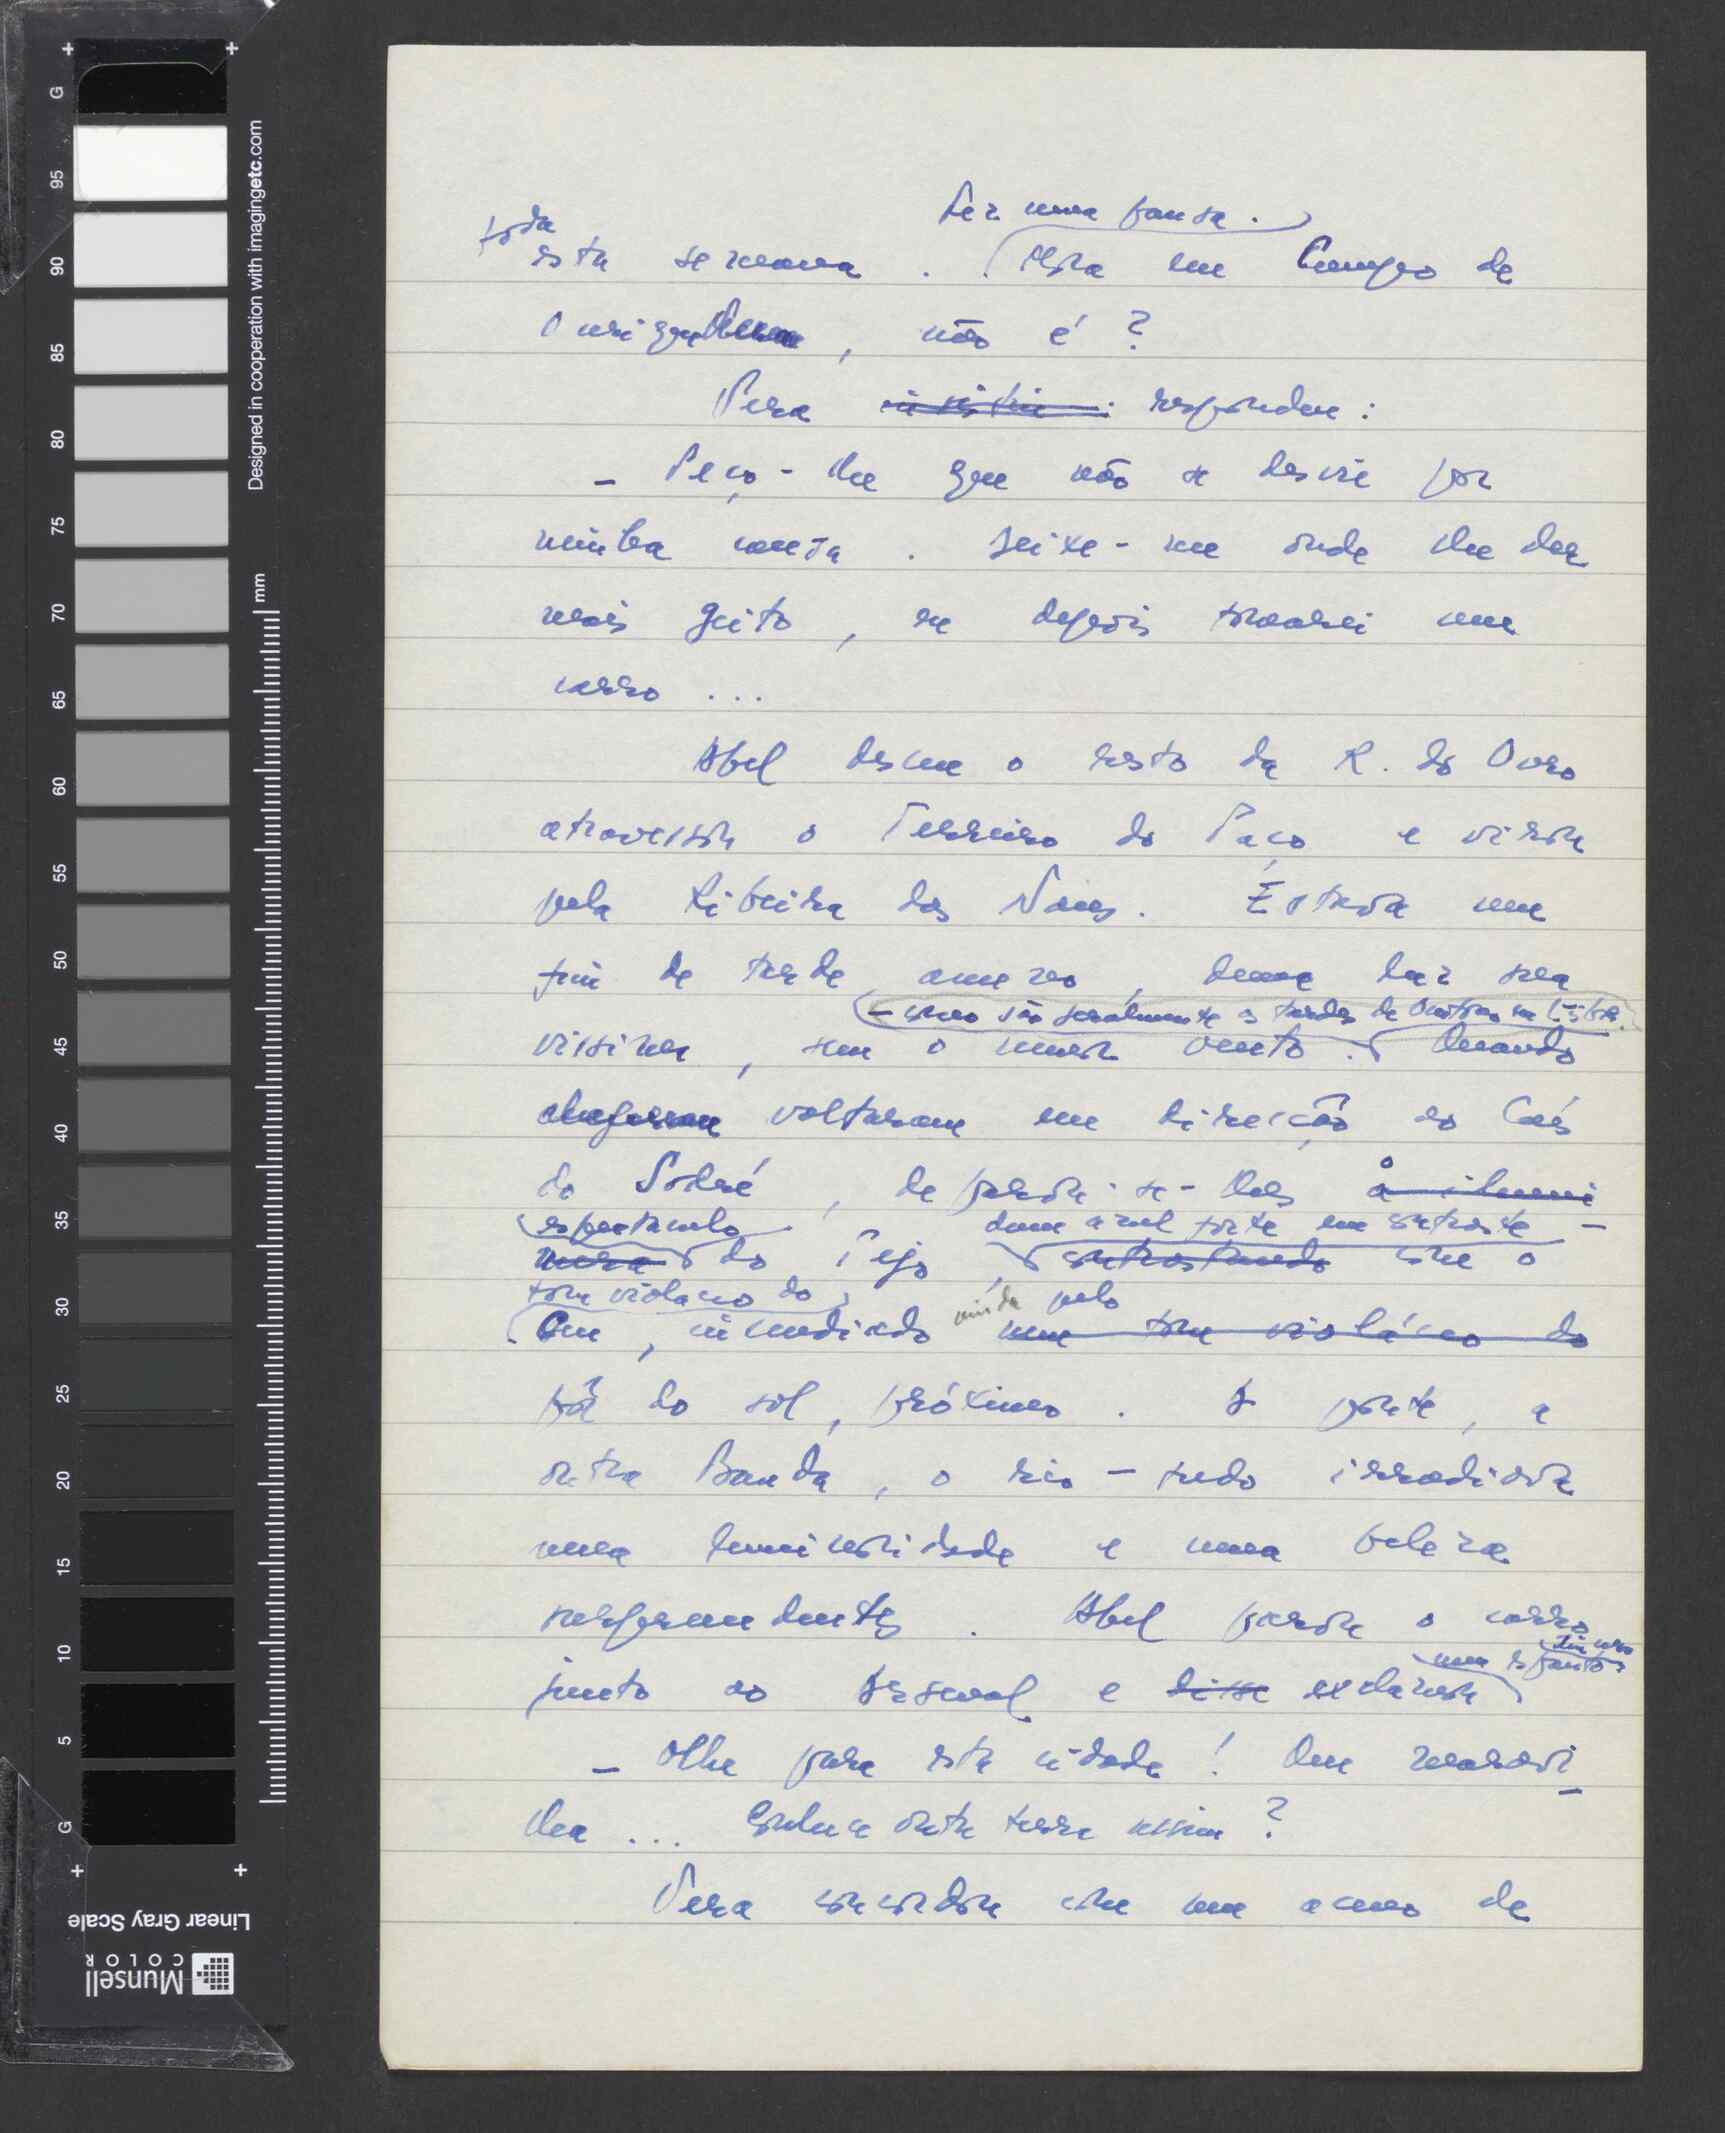 Fez uma pausa.
toda
esta semana. Mora em Campo de
Ourique, não é?
Vera insistiu: respondeu:
- Peço-lhe que não se desvie por
minha causa. Deixe-me onde lhe der
mais geito, eu depois tomarei um
carro ...
Abel desceu o resto da R. do Ouro
atravessou o Terreiro do Paço e virou
pela Ribeira das Naus. Estava um
fim de tarde ameno, duma luz
- como são geralmente as tardes de Outono em Lisboa.
, sem o menor vento. Quando
chegaram voltaram em direcção ao Cais
do Sodré, deparou-se-lhes o a ilumi
espectaculo dum azul forte em contraste -
do Tejo, contrastando com o
tom violaceo do
Que, incendiado ainda pelo num tom violáceo do
pôr do sol, próximo. A ponte, a
outra Banda, o rio - tudo irradiava
uma luminosidade e uma beleza
surpreendentes. Abel parou o carro
num espanto sincero
junto ao Arsenal e disse exclamou
- Olhe para esta cidade! Que maravi-
lha ... Conhece outra terra assim?
Vera concordou com um aceno de
G
95
90
85
80
75
70
65
60
55
50
45
40
35
30
25
20
15
10
5
G
mm
Designed in cooperation with imagingetc.com
Linear Gray Scale
Munsell
COLOR